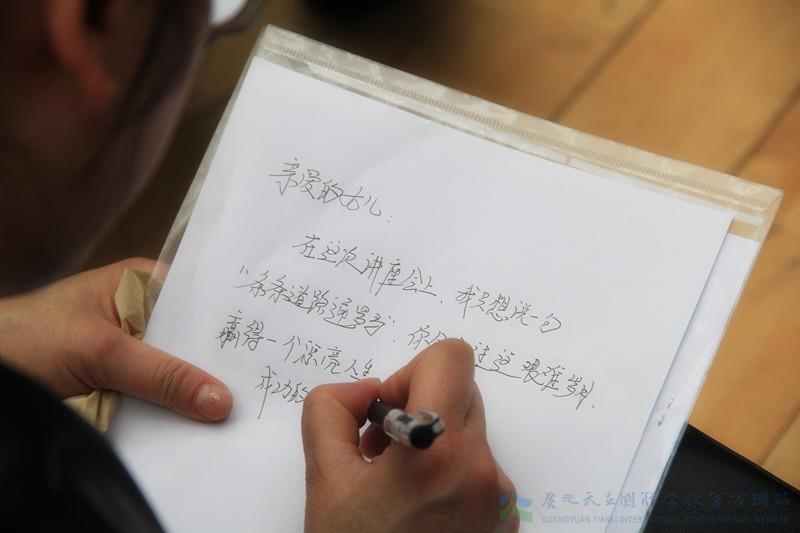 亲爱的女儿：
在这次讲座会上、我只想说一句
“条条道路通罗马”．你
艰难
赢得一个漂亮人生
成功
广元天立国际学校官方網站
GUANGYUAN TIANLI INTERNATIONAL SCHOOLOFFICIAL WEBSITE